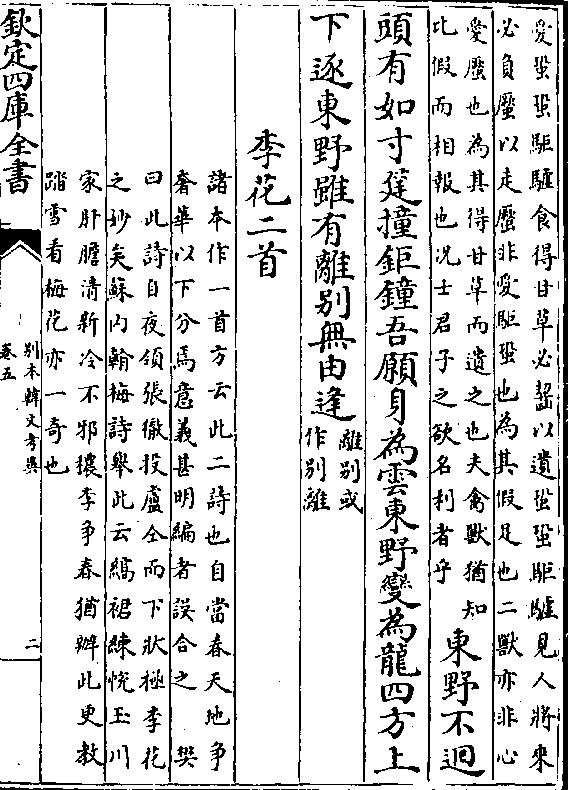 愛蛩蛩駏驉食得甘草必齧以遺蛩蛩駏驉見人將來
必負蟨以走蟨非愛駏蛩也為其假足也二獸亦非心
愛蟨也為其得甘草而遺之也夫禽獸猶知
比假而相報也況士君子之欲名利者乎
東野不迴
頭有如寸莛撞鉅鐘吾願身為雲東野變為龍四方上
下逐東野雖有離別無由逢
離別或
作別離
李花二首
諸本作一首方云此二詩也自當春天地争
奢華以下分焉意義甚明編者誤合之
樊
曰此詩自夜領張徹投盧仝而下狀極李花
之妙矣蘇内翰梅詩舉此云縞裙練帨玉川
家肝膽清新冷不邪穠李争春猶辦此更教
踏雪看梅花亦一奇也
欽定四庫全書
别本韓文考異
卷五
二